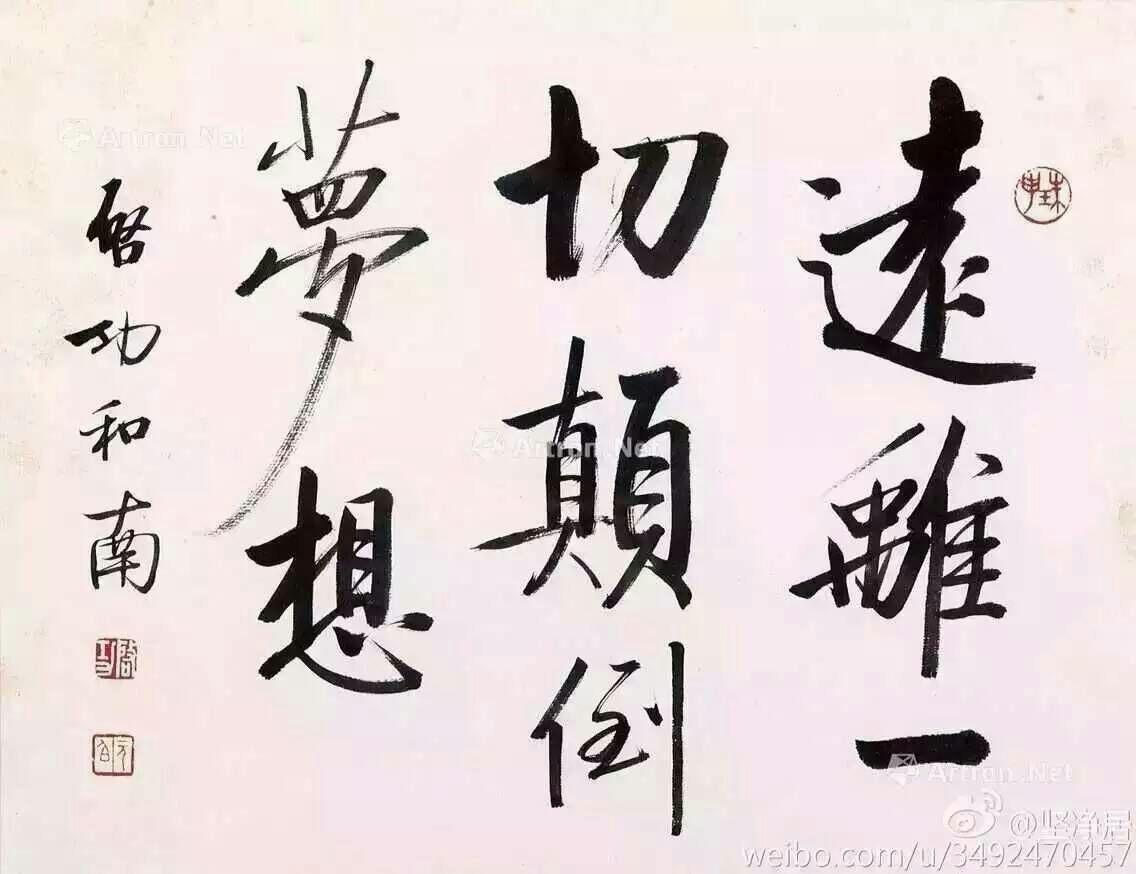 遠離一
切顛倒
夢想
啓功和南
Artron.Net
Artron.Net
Artron.Net
@坚净居
weibo.com/u/3492470457